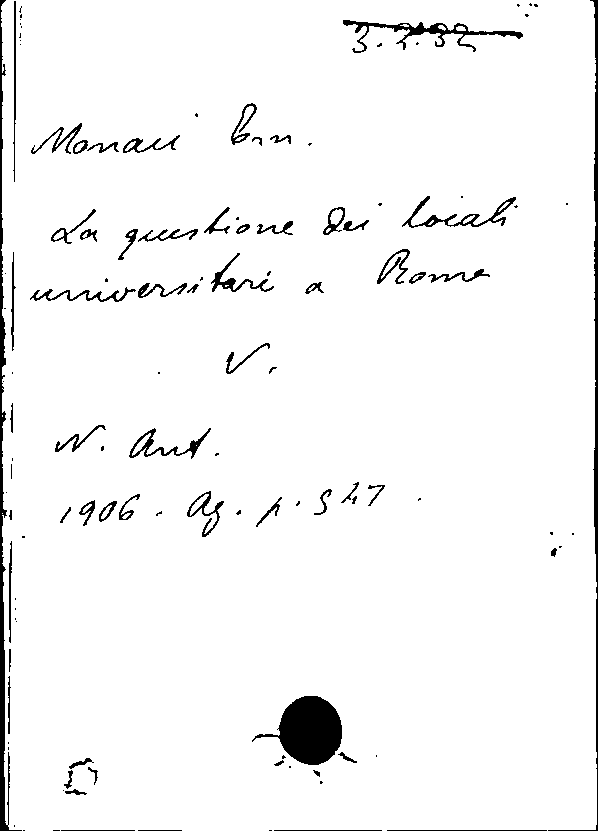 3.2.32
Monaci Ern.
La questione dei locali
universitari a Roma
V.
N. Ant.
1906. Ag. p. 347.